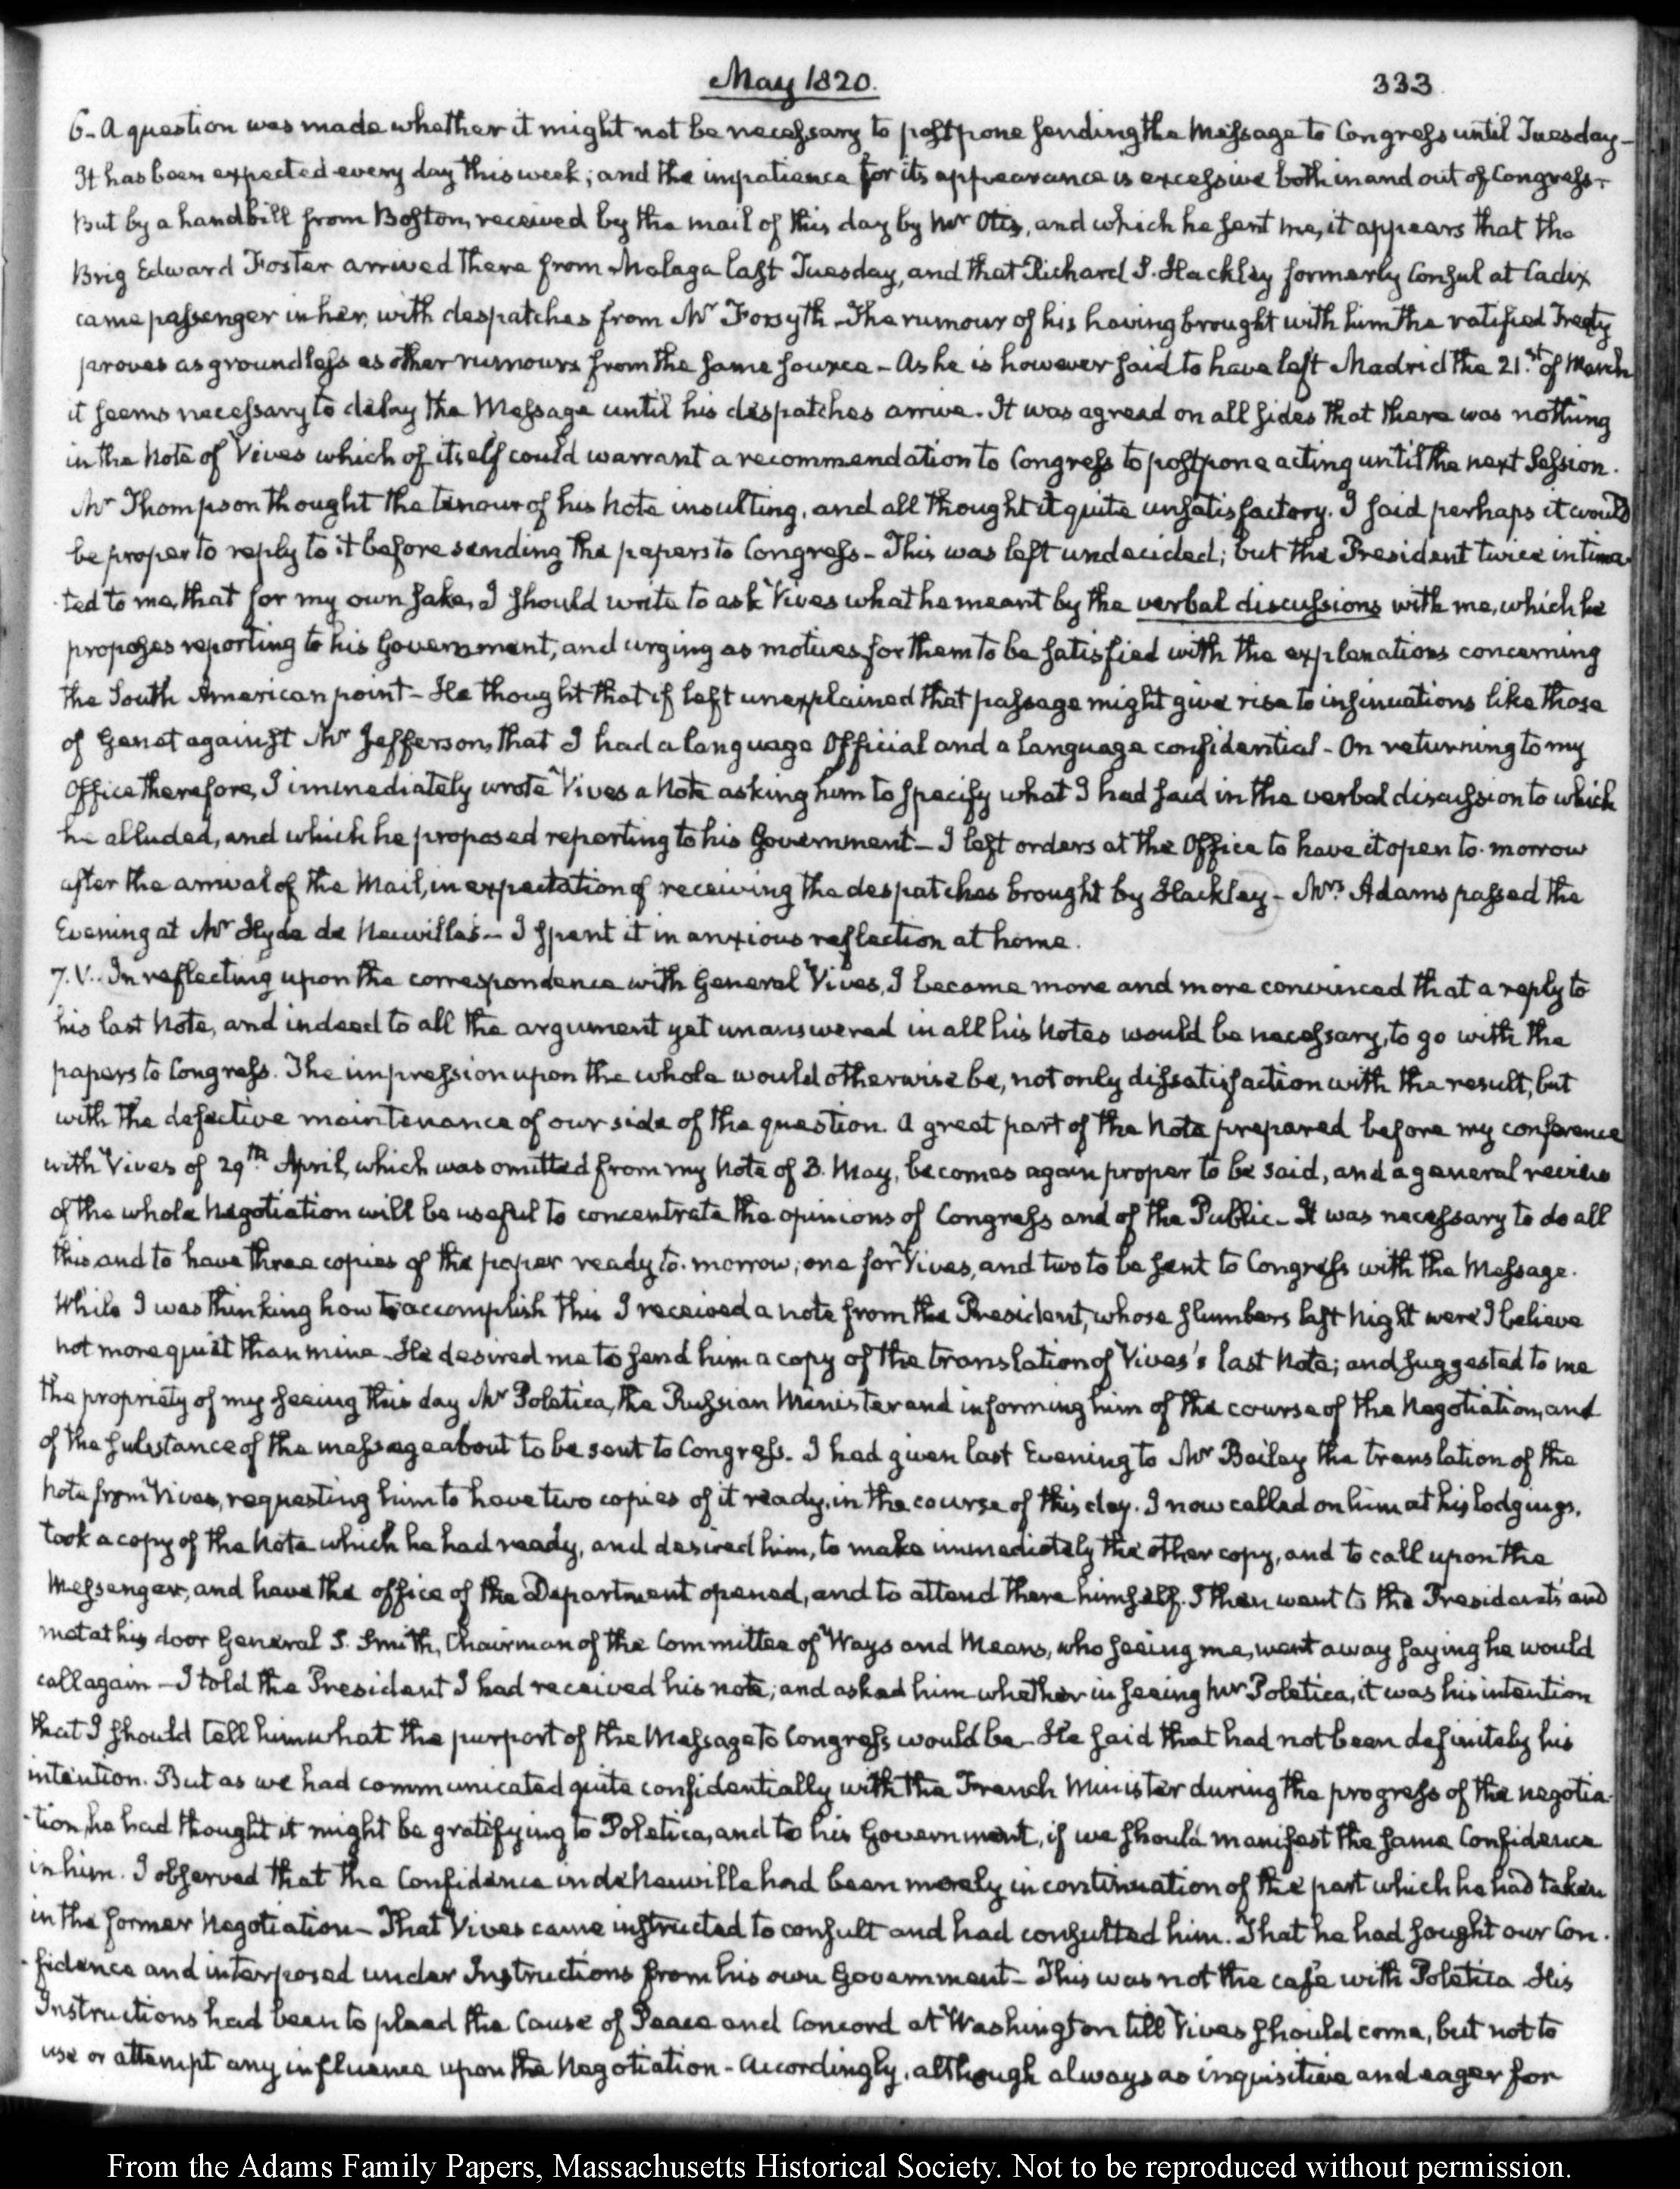 May 1820.
333.
6 - A question was made whether it might not be necessary to postpone sending the Message to Congress until Tuesday -
It has been expected every day this week; and the impatience for its appearance is excessive both in and out of Congress -
But by a handbill from Boston, received by the mail of this day by Mr Otis, and which he sent me, it appears that the
Brig Edward Foster arrived there from Malaga last Tuesday, and that Richard S. Hackley formerly Consul at Cadix
came passenger in her, with despatches from Mr Forsyth - The rumour of his having brought with him the ratified Treaty
proves as groundless as other rumours from the same source - As he is however said to have left Madrid the 21.st of March
it seems necessary to delay the Message until his despatches arrive. It was agreed on all sides that there was nothing
in the Note of Vives which of itself could warrant a recommendation to Congress to postpone acting until the next Session.
Mr Thompson thought the tenour of his Note insulting, and all thought it quite unsatisfactory. I said perhaps it would
be proper to reply to it before sending the papers to Congress - This was left undecided; but the President twice intima-
-ted to me, that for my own sake, I should write to ask Vives what he meant by the verbal discussions with me, which he
proposes reporting to his Government, and urging as motives for them to be satisfied with the explanations concerning
the South American point - He thought that if left unexplained that passage might give rise to insinuations like those
of Genet against Mr Jefferson, that I had a language Official and a language confidential - On returning to my
Office therefore, I immediately wrote Vives a Note asking him to specify what I had said in the verbal discussion to which
he alluded, and which he proposed reporting to his Government - I left orders at the Office to have it open to-morrow
after the arrival of the Mail, in expectation of receiving the despatches brought by Hackley - Mrs. Adams passed the
Evening at Mr Hyde de Neuville's - I spent it in anxious reflection at home.
7. V. In reflecting upon the correspondence with General Vives, I became more and more convinced that a reply to
his last Note, and indeed to all the argument yet unanswered in all his Notes would be necessary, to go with the
papers to Congress. The impression upon the whole would otherwise be, not only dissatisfaction with the result, but
with the defective maintenance of our side of the question. A great part of the Note prepared before my conference
with Vives of 29th April, which was omitted from my Note of 3. May, becomes again proper to be said, and a general review
of the whole Negotiation will be useful to concentrate the opinions of Congress and of the Public - It was necessary to do all
this and to have three copies of the paper ready to-morrow; one for Vives, and two to be sent to Congress with the Message.
While I was thinking how to accomplish this I received a note from the President, whose slumbers last Night were I believe
not more quiet than mine - He desired me to send him a copy of the translation of Vives's last Note; and suggested to me
the propriety of my seeing this day Mr Poletica, the Russian Minister and informing him of the course of the Negotiation, and
of the substance of the message about to be sent to Congress. I had given last Evening to Mr Bailey the translation of the
Note from Vives, requesting him to have two copies of it ready, in the course of this day. I now called on him at his lodgings,
took a copy of the Note which he had ready, and desired him, to make immediately the other copy, and to call upon the
Messenger, and have the office of the Department opened, and to attend there himself. I then went to the President's and
met at his door General S. Smith, Chairman of the Committee of Ways and Means, who seeing me, went away saying he would
call again - I told the President I had received his note; and asked him whether in seeing Mr Poletica, it was his intention
that I should tell him what the purport of the Message to Congress would be - He said that had not been definitely his
intention. But as we had communicated quite confidentially with the French Minister during the progress of the negotia-
-tion, he had thought it might be gratifying to Poletica, and to his Government, if we should manifest the same Confidence
in him. I observed that the Confidence in de Neuville had been merely in continuation of the part which he had taken
in the former Negotiation - That Vives came instructed to consult and had consulted him. That he had sought our Con-
-fidence and interposed under Instructions from his own Government - This was not the case with Poletica His
Instructions had been to plead the Cause of Peace and Concord at Washington till Vives should come, but not to
use or attempt any influence upon the Negotiation - Accordingly, although always as inquisitive and eager for
From the Adams Family Papers, Massachusetts Historical Society. Not to be reproduced without permission.